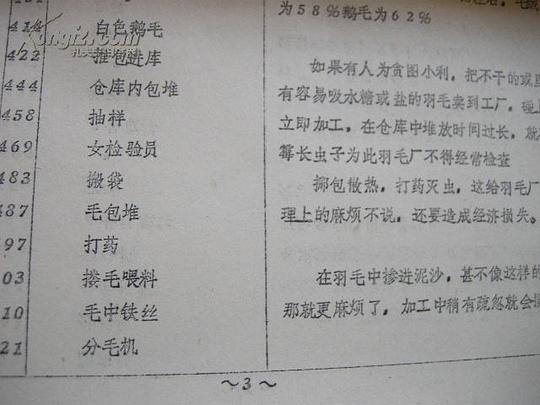 为58%鹅毛为62%
414 白色鹅毛
422 推包进库
444 仓库内包堆
458 抽样
469 女检验员
483 搬袋
487 毛包堆
97 打药
03 搂毛喂料
10 毛中铁丝
21 分毛机
如果有人为贪图小利，把不干的或
有容易吸水糖或盐的羽毛卖到工厂，碰
立即加工，在仓库中堆放时间过长，就
霉长虫子为此羽毛厂不得经常检查
掷包散热，打药灭虫，这给羽毛厂
理上的麻烦不说，还要造成经济损失。
在羽毛中掺进泥沙，甚不像这样的
那就更麻烦了，加工中稍有疏忽就会
～3～
kongfz.com